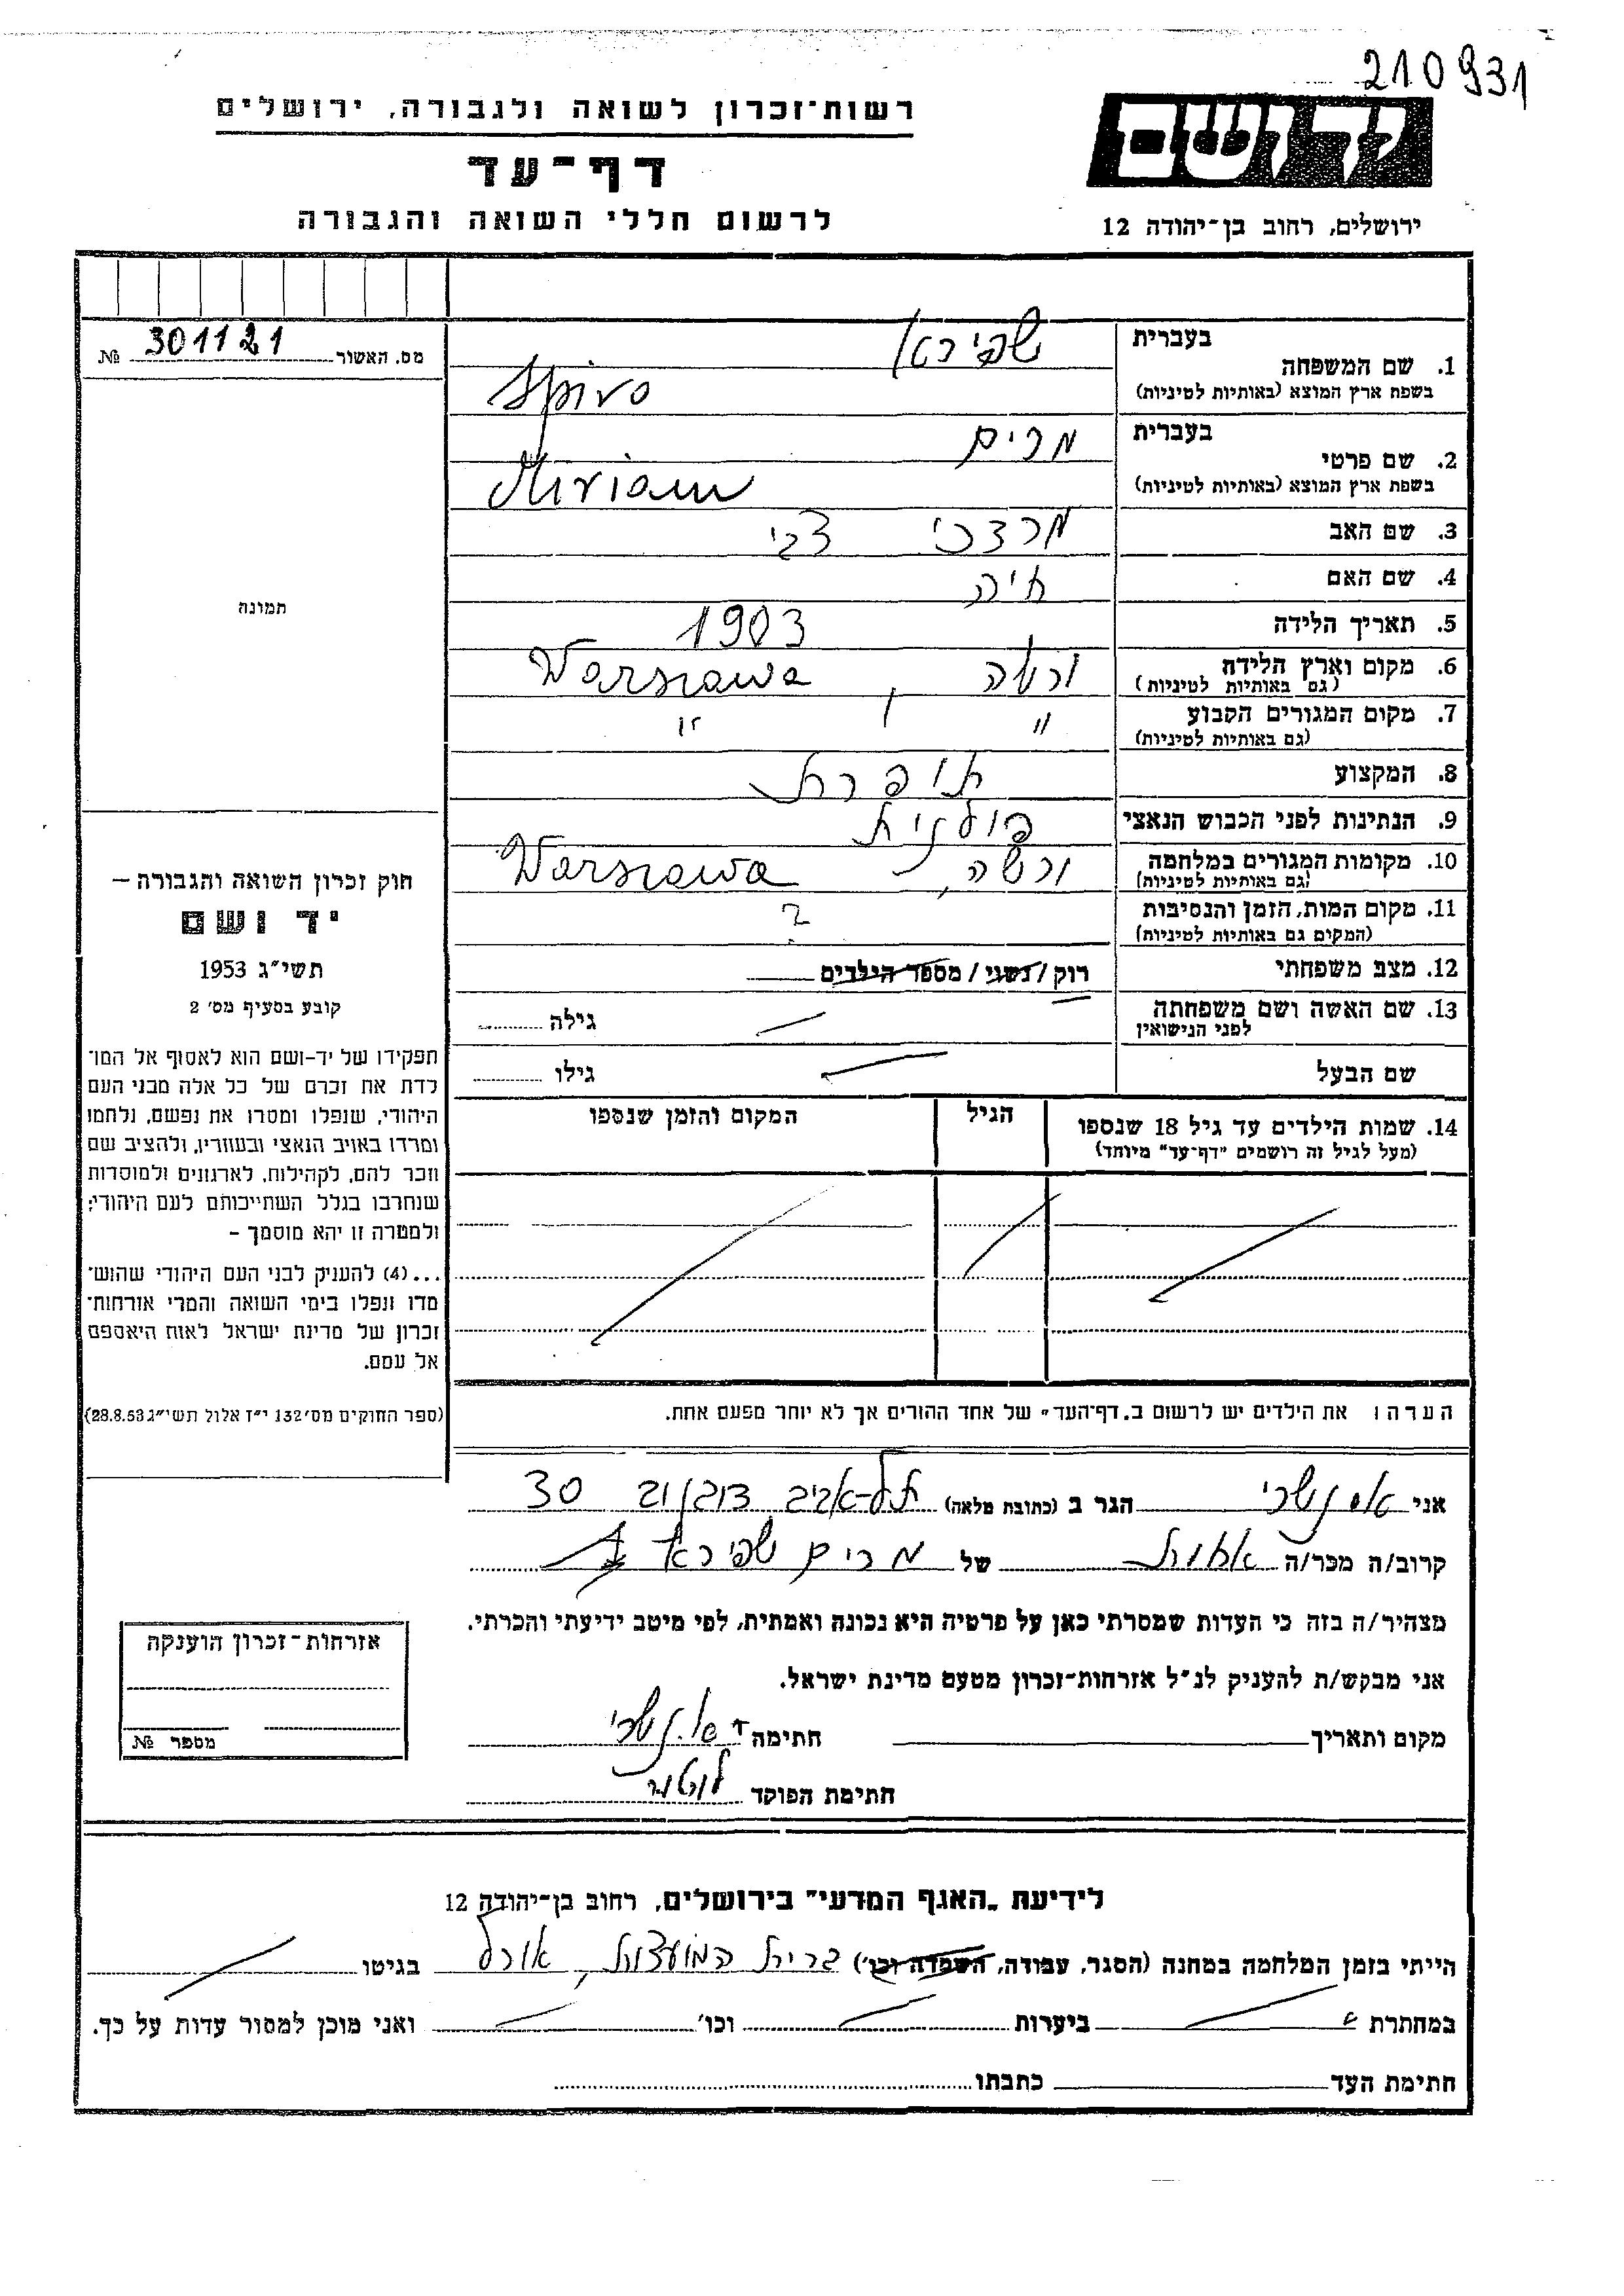 210931
רשות־זכרון לשואה ולגבורה, ירושלים
יד ושם
דף־עד
לרשום חללי השואה והגבורה
ירושלים, רחוב בן־יהודה 12
מס. האשור 301121 №
תמונה
חוק זכרון השואה והגבורה —
יד ושם
תשי״ג 1953
קובע בסעיף מס׳ 2
תפקידו של יד-ושם הוא לאסוף אל המו־
לדת את זכרם של כל אלה מבני העם
היהודי, שנפלו ומסרו את נפשם, נלחמו
ומרדו באויב הנאצי ובעוזריו, ולהציב שם
וזכר להם, לקהילות, לארגונים ולמוסדות
שנחרבו בגלל השתייכותם לעם היהודי;
ולמטרה זו יהא מוסמך —
...(4) להעניק לבני העם היהודי שהוש־
מדו ונפלו בימי השואה והמרי אזרחות־
זכרון של מדינת ישראל לאות היאספם
אל עמם.
(ספר החוקים מס׳ 132 י״ז אלול תשי״ג 28.8.53)
בעברית
1. שם המשפחה
שפירא
בשפת ארץ המוצא (באותיות לטיניות)
Spiro
בעברית
2. שם פרטי
מרים
בשפת ארץ המוצא (באותיות לטיניות)
Miriam
3. שם האב מרדכי צבי
4. שם האם חיה
5. תאריך הלידה 1903
6. מקום וארץ הלידה ורשה, Warszawa
(גם באותיות לטיניות)
7. מקום המגורים הקבוע " , "
(גם באותיות לטיניות)
8. המקצוע תופרת
9. הנתינות לפני הכבוש הנאצי פולנית
10. מקומות המגורים במלחמה ורשה, Warszawa
(גם באותיות לטיניות)
11. מקום המות, הזמן והנסיבות ?
(המקום גם באותיות לטיניות)
12. מצב משפחתי רוק / נשוי / מספר הילדים
13. שם האשה ושם משפחתה גילה
לפני הנישואין
שם הבעל גילו
14. שמות הילדים עד גיל 18 שנספו הגיל המקום והזמן שנספו
(מעל לגיל זה רושמים "דף־עד" מיוחד)
הערה: את הילדים יש לרשום ב„דף־העד" של אחד ההורים אך לא יותר מפעם אחת.
אני הגר ב (כתובת מלאה) תל-אביב דובנוב 30
קרוב/ה מכר/ה אחות של מרים שפירא
מצהיר/ה בזה כי העדות שמסרתי כאן על פרטיה היא נכונה ואמתית, לפי מיטב ידיעתי והכרתי.
אני מבקש/ת להעניק לנ״ל אזרחות־זכרון מטעם מדינת ישראל.
מקום ותאריך חתימה
חתימת הפוקד
אזרחות־זכרון הוענקה
מספר №
לידיעת „האגף המדעי" בירושלים, רחוב בן־יהודה 12
הייתי בזמן המלחמה במחנה (הסגר, עבודה, השמדה וכו׳) ברית המועצות, אורל בגיטו
במחתרת ביערות וכו׳ ואני מוכן למסור עדות על כך.
חתימת העד כתבתו